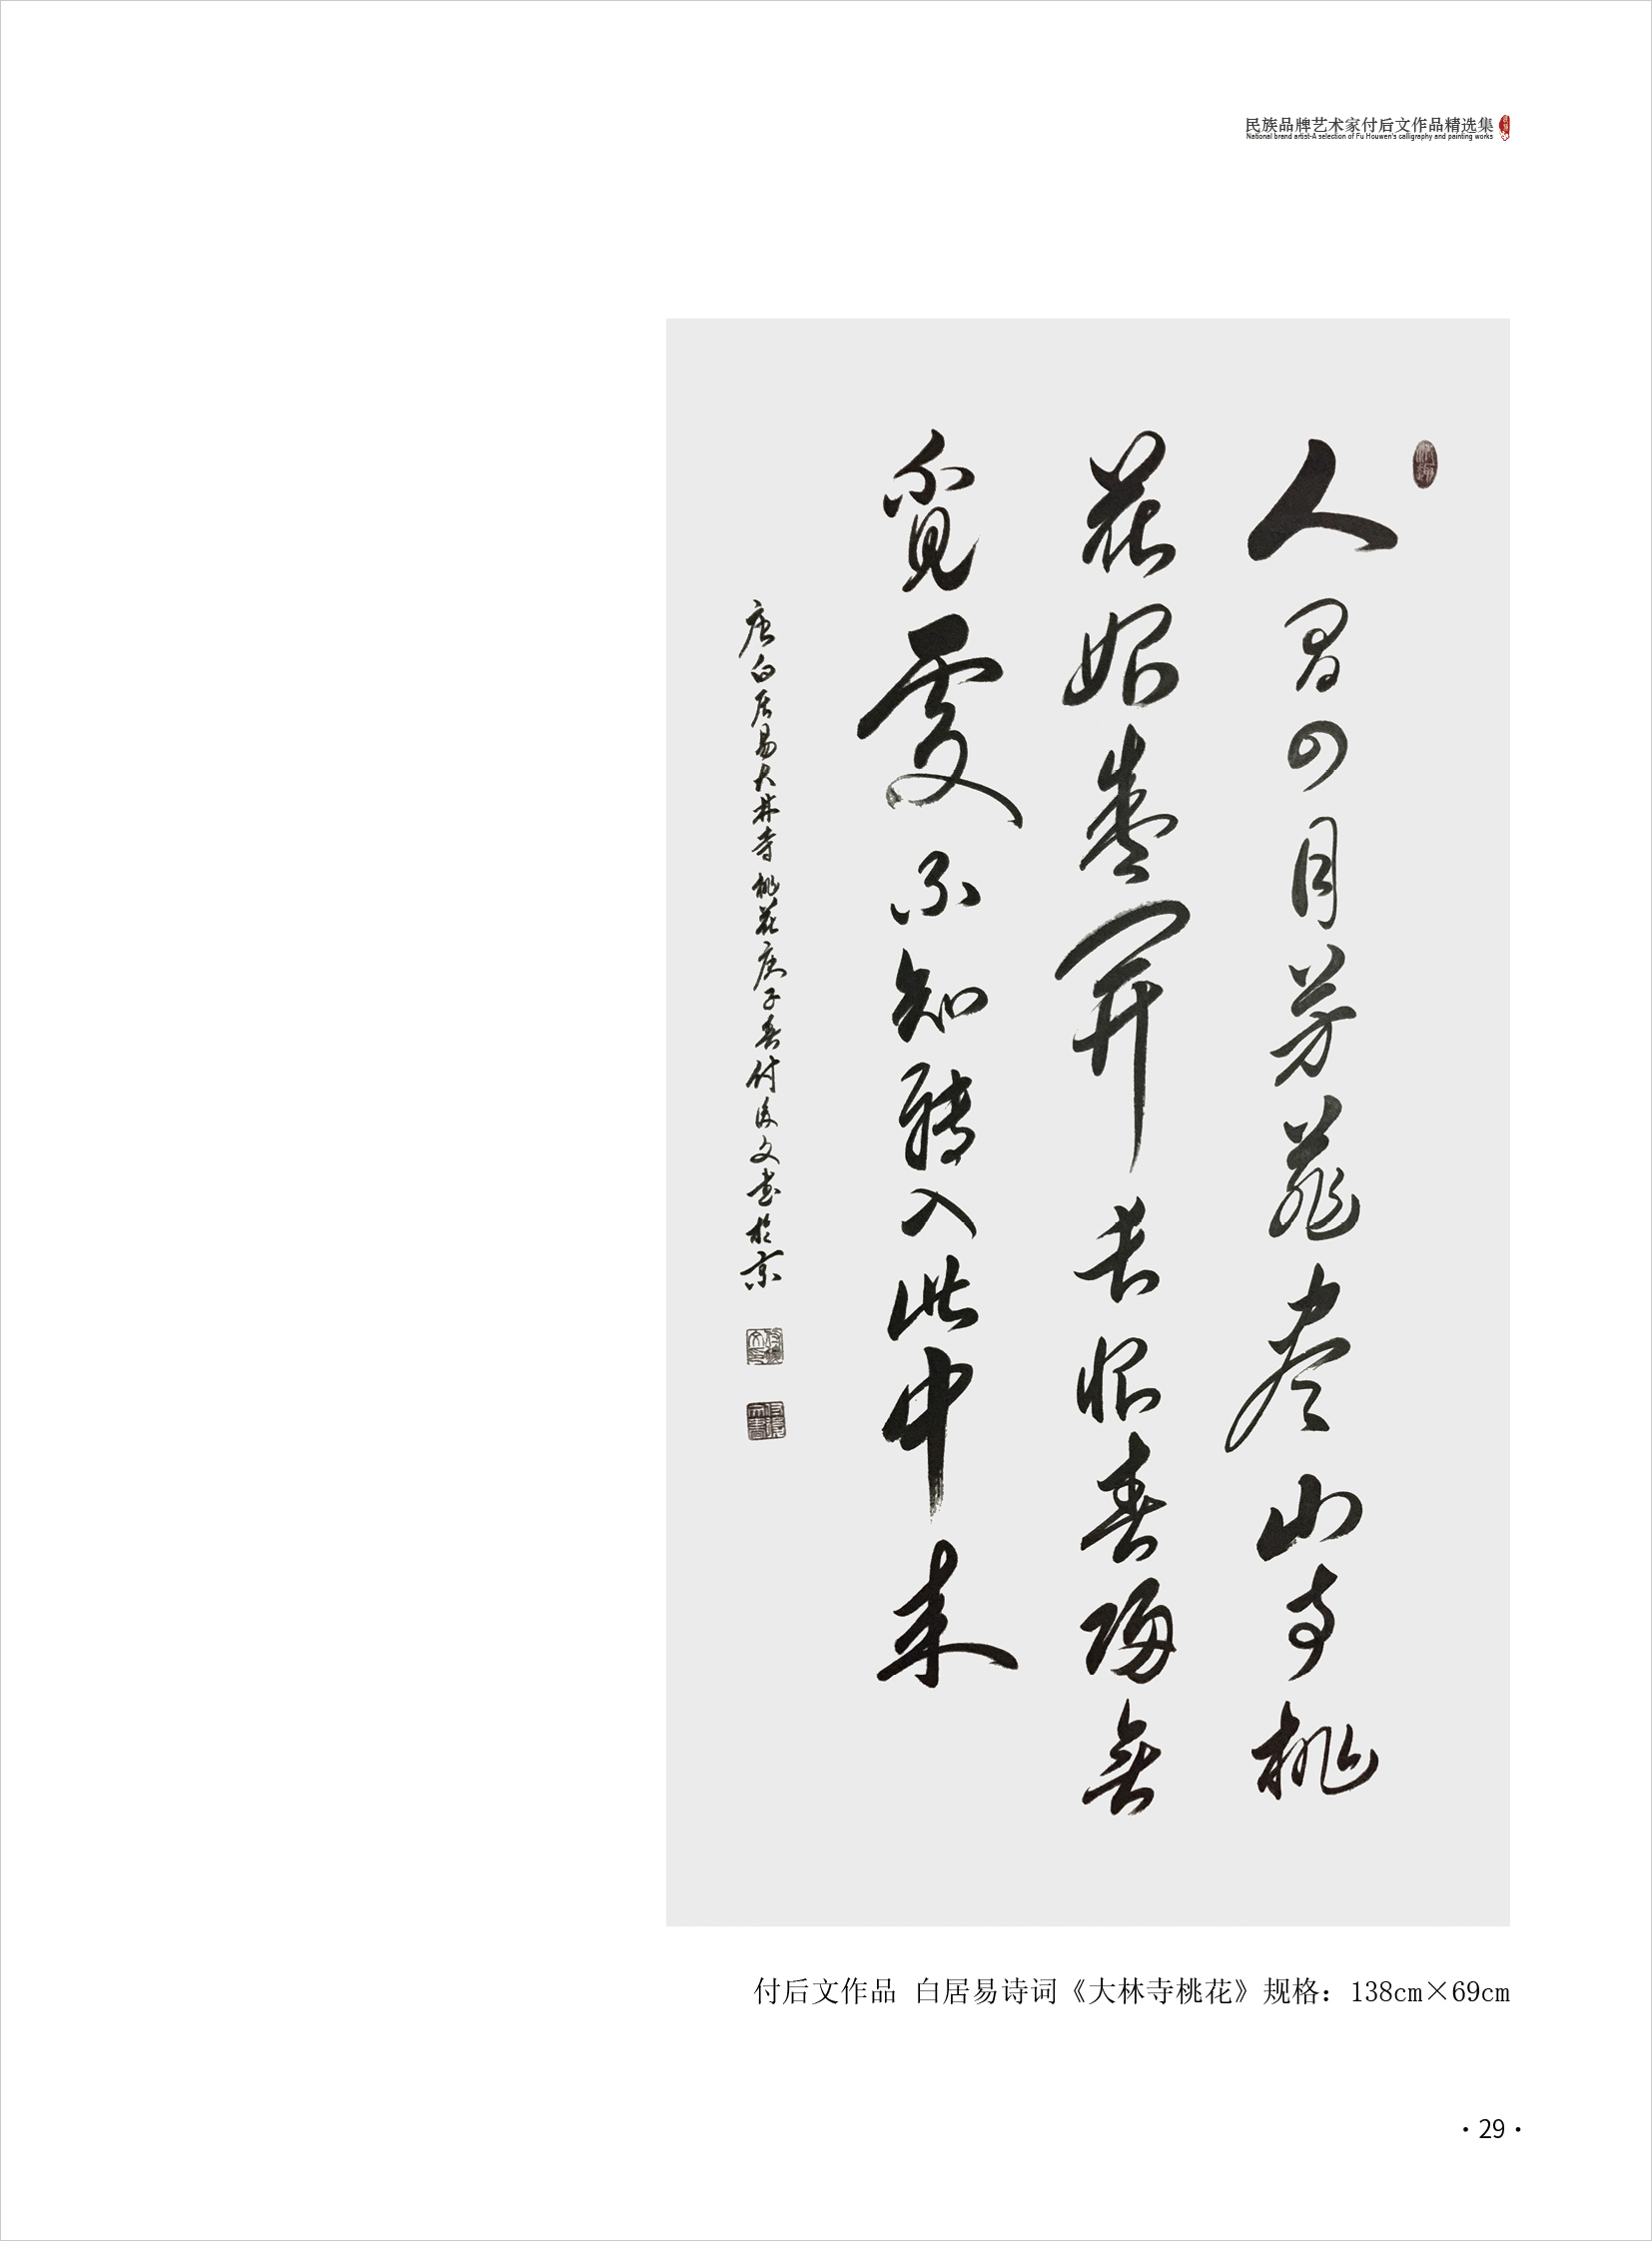 民族品牌艺术家付后文作品精选集
National brand artist-A selection of Fu Houwen's calligraphy and painting works
人間四月芳菲盡山寺桃
花始盛開長恨春歸無
覓處不知轉入此中来
唐白居易大林寺桃花庚子春付後文書於京
付后文作品 白居易诗词《大林寺桃花》规格：138cm×69cm
·29·